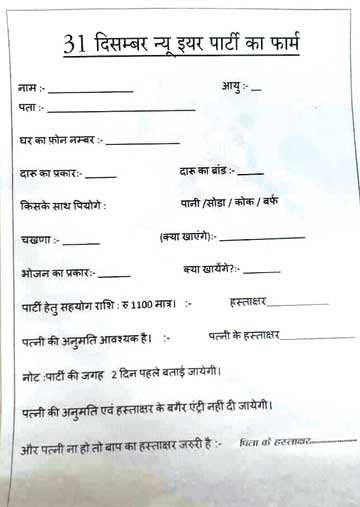 31 दिसम्बर न्यू इयर पार्टी का फार्म
नाम :- __________ आयु :- __
पता :- __________
घर का फ़ोन नम्बर :- __________
दारू का प्रकार:- ______ दारू का ब्रांड :- ______
किसके साथ पियोगे : पानी /सोडा / कोक / बर्फ
चखणा :- ______ (क्या खाएंगे):- __________
भोजन का प्रकार:- ______ क्या खायेंगे?:- ______
पार्टी हेतु सहयोग राशि : रु 1100 मात्र। :- हस्ताक्षर__________
पत्नी की अनुमति आवश्यक है। :- पत्नी के हस्ताक्षर__________
नोट :पार्टी की जगह 2 दिन पहले बताई जायेगी।
पत्नी की अनुमति एवं हस्ताक्षर के बगैर एंट्री नहीं दी जायेगी।
और पत्नी ना हो तो बाप का हस्ताक्षर जरुरी है :- पिता के हस्ताक्षर..................